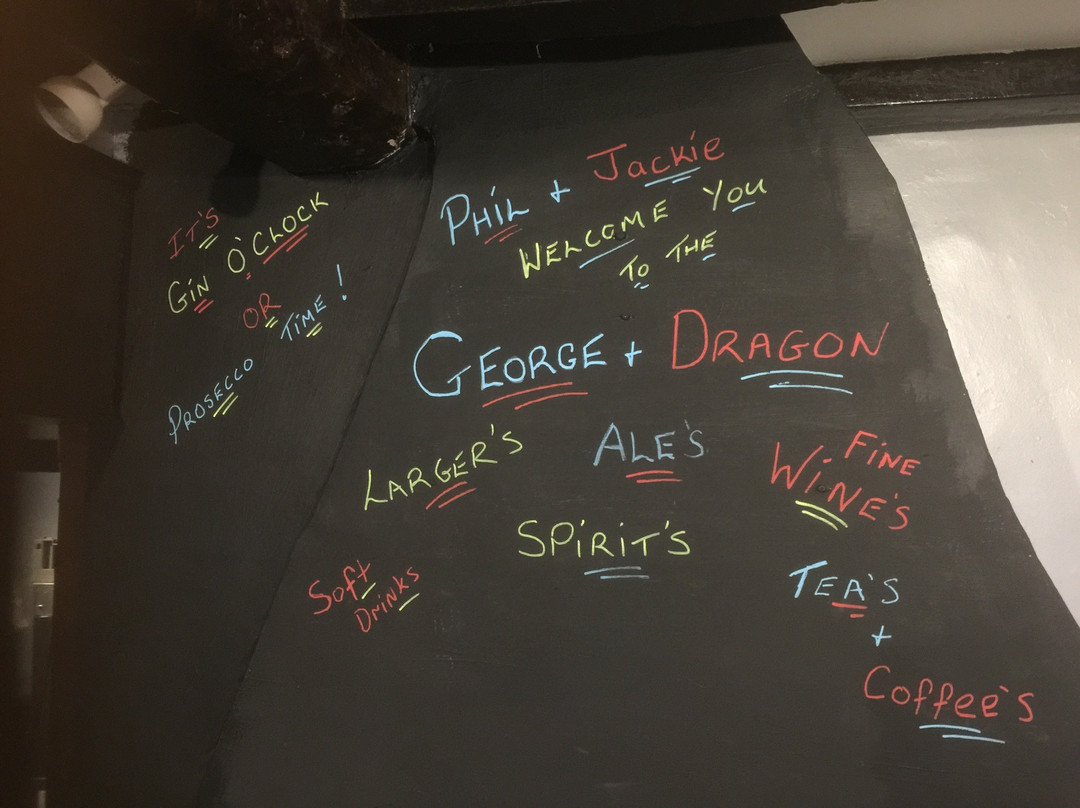 IT'S
GIN O'CLOCK
OR
PROSECCO TIME!
PHIL + Jackie
WELCOME YOU
TO THE
GEORGE + DRAGON
LARGER'S
ALE'S
FINE
WINE'S
SPIRIT'S
Soft
DRINKS
TEA'S
+
Coffee's